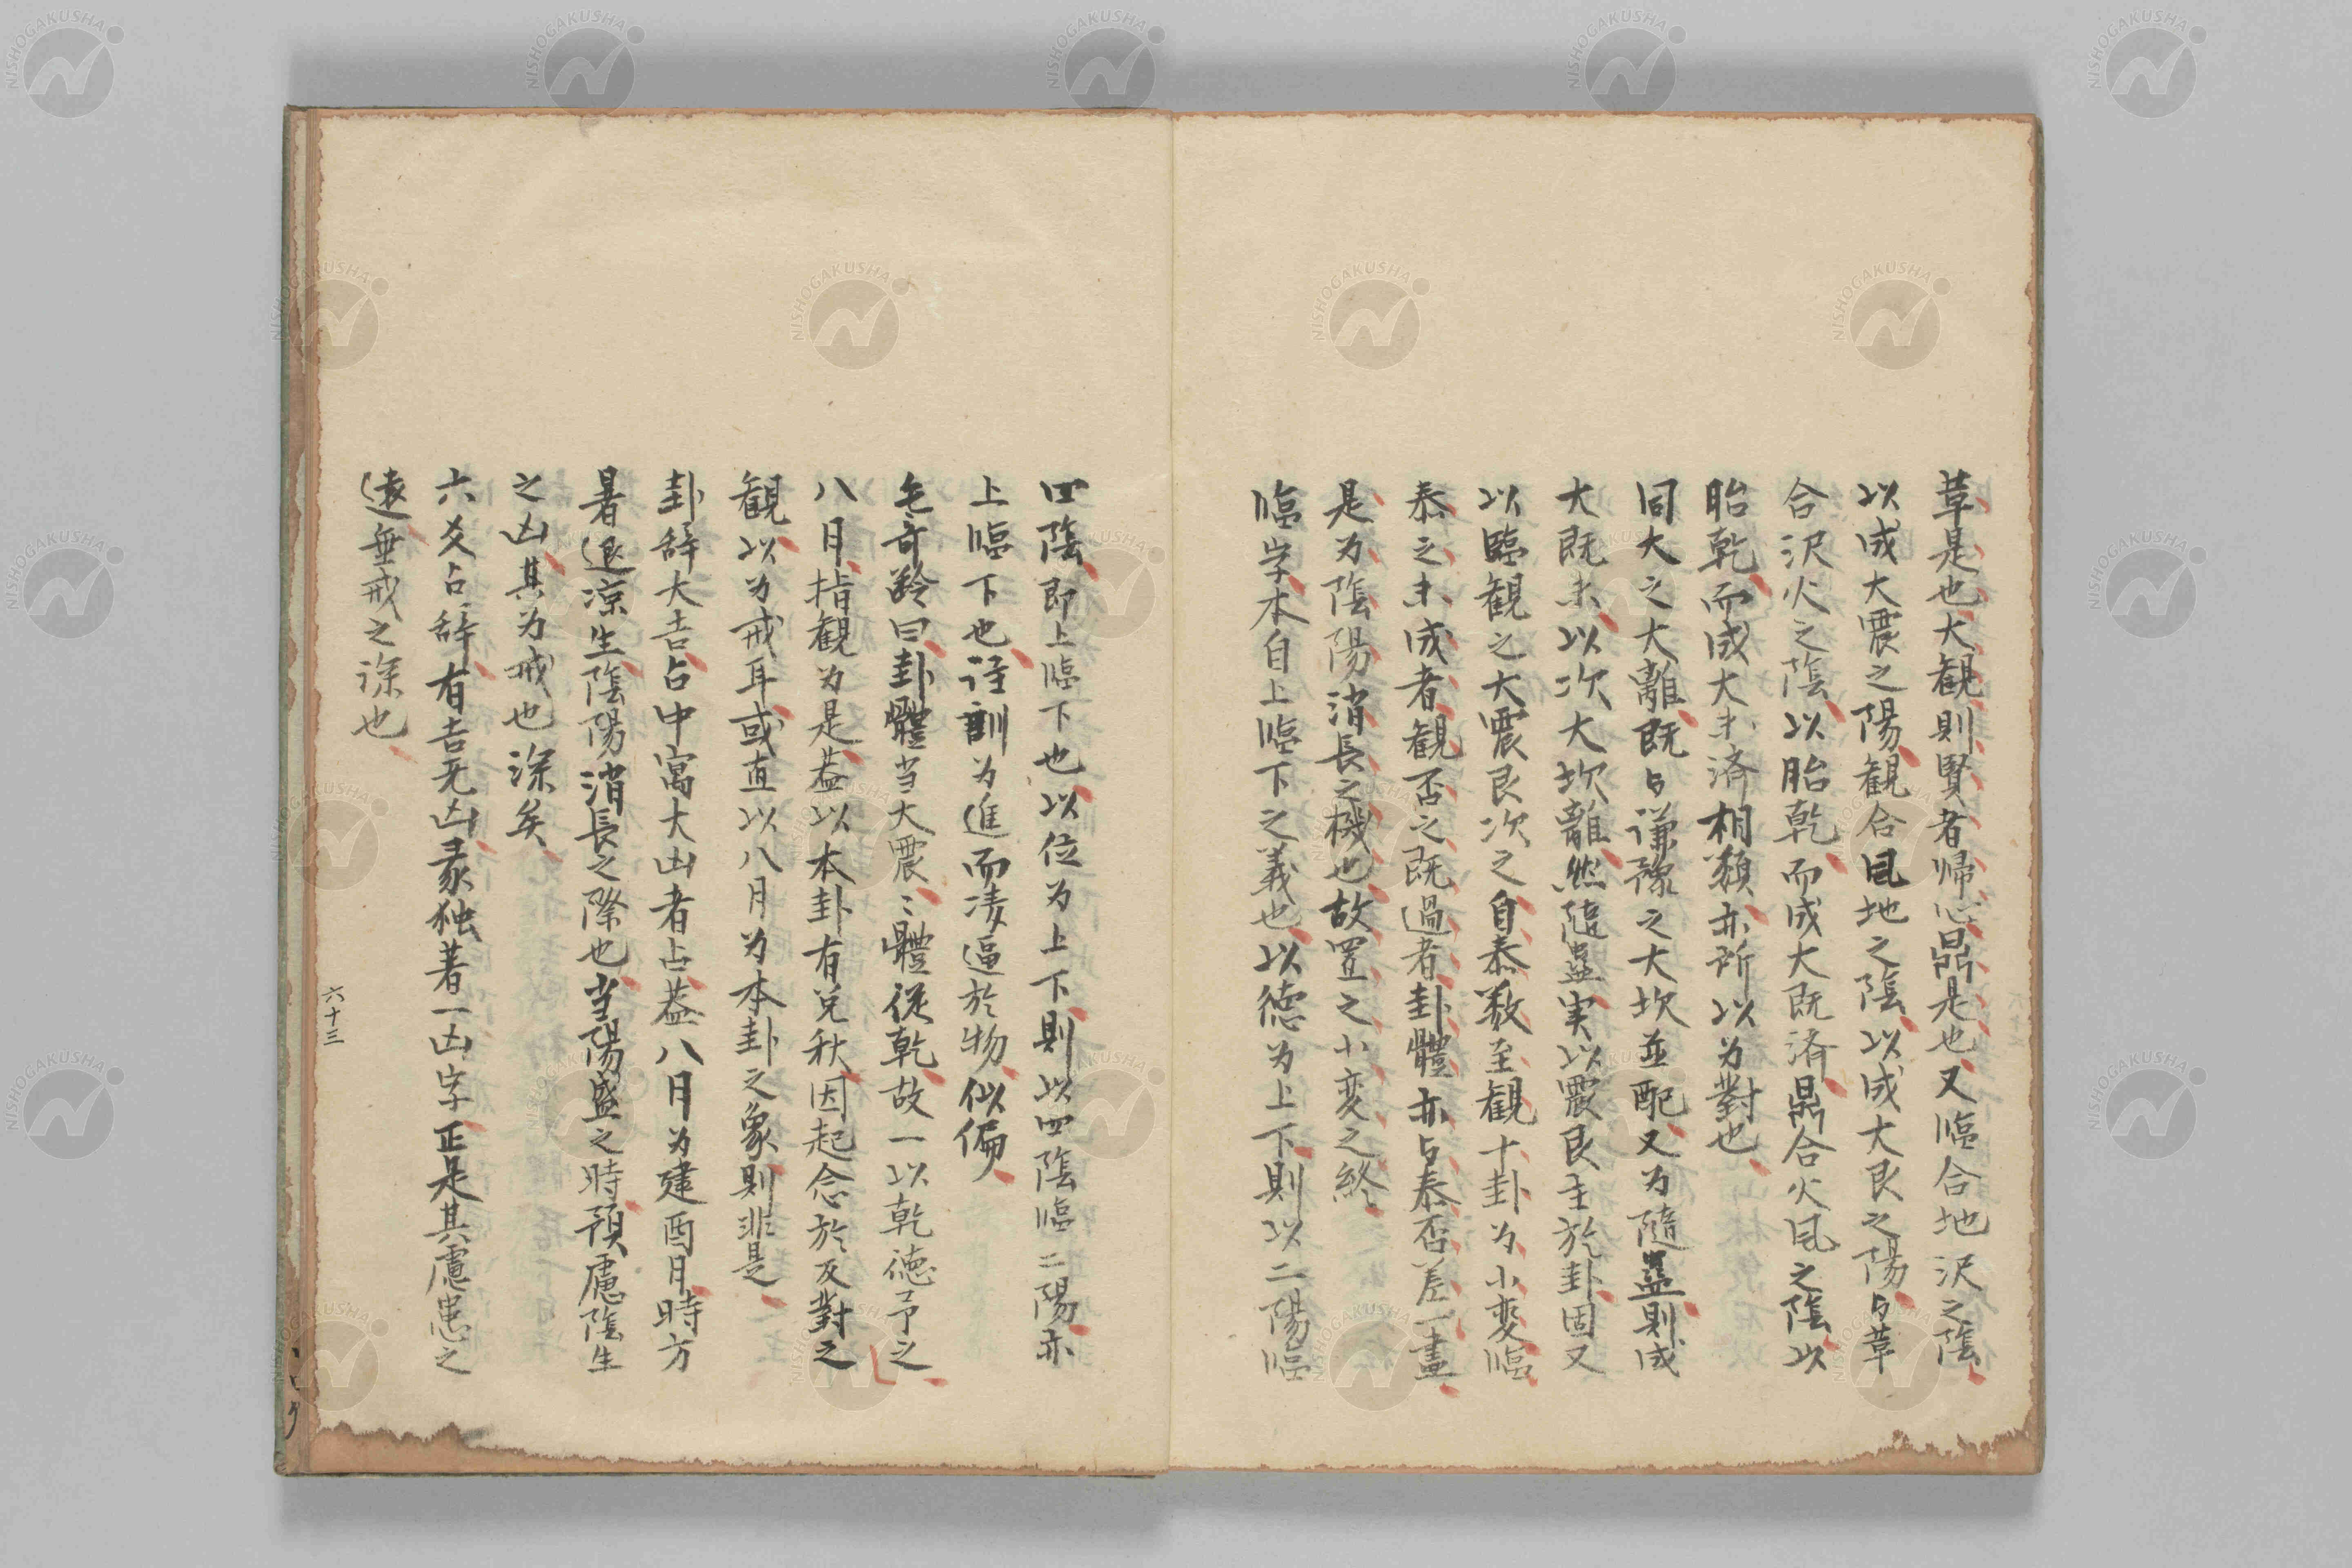 草是也大観則賢者帰心鼎是也又臨合地沢之陰
以成大震之陽観合風地之陰以成大艮之陽与革
合沢火之陰以胎乾而成大既済鼎合火風之陰以
胎乾而成大未済相類亦所以为對也
同大之大離既与謙豫之大坎並配又为隨蠱則成
大既未以次大坎離然隨蠱実以震艮主於卦固又
以臨観之大震艮次之自泰数至観十卦为小変臨
泰之未成者観否之既過者卦體亦与泰否差一畫
是为陰陽消長之機也故置之小変之終
臨字本自上臨下之義也以徳为上下則以二陽臨
四陰即上臨下也以位为上下則以四陰臨二陽亦
上臨下也註訓为進而凌逼於物似偏
毛奇齡曰卦體当大震〻體従乾故一以乾徳予之
八月指観为是葢以本卦有兌秋因起念於反對之
観以为戒耳或直以八月为本卦之象則非是
卦辞大吉占中寓大凶者占葢八月为建酉月時方
暑退凉生陰陽消長之際也当陽盛之時預慮陰生
之凶其为戒也深矣
六爻占辞有吉无凶彖独著一凶字正是其慮患之
遠垂戒之深也
六十三
NISHOGAKUSHA